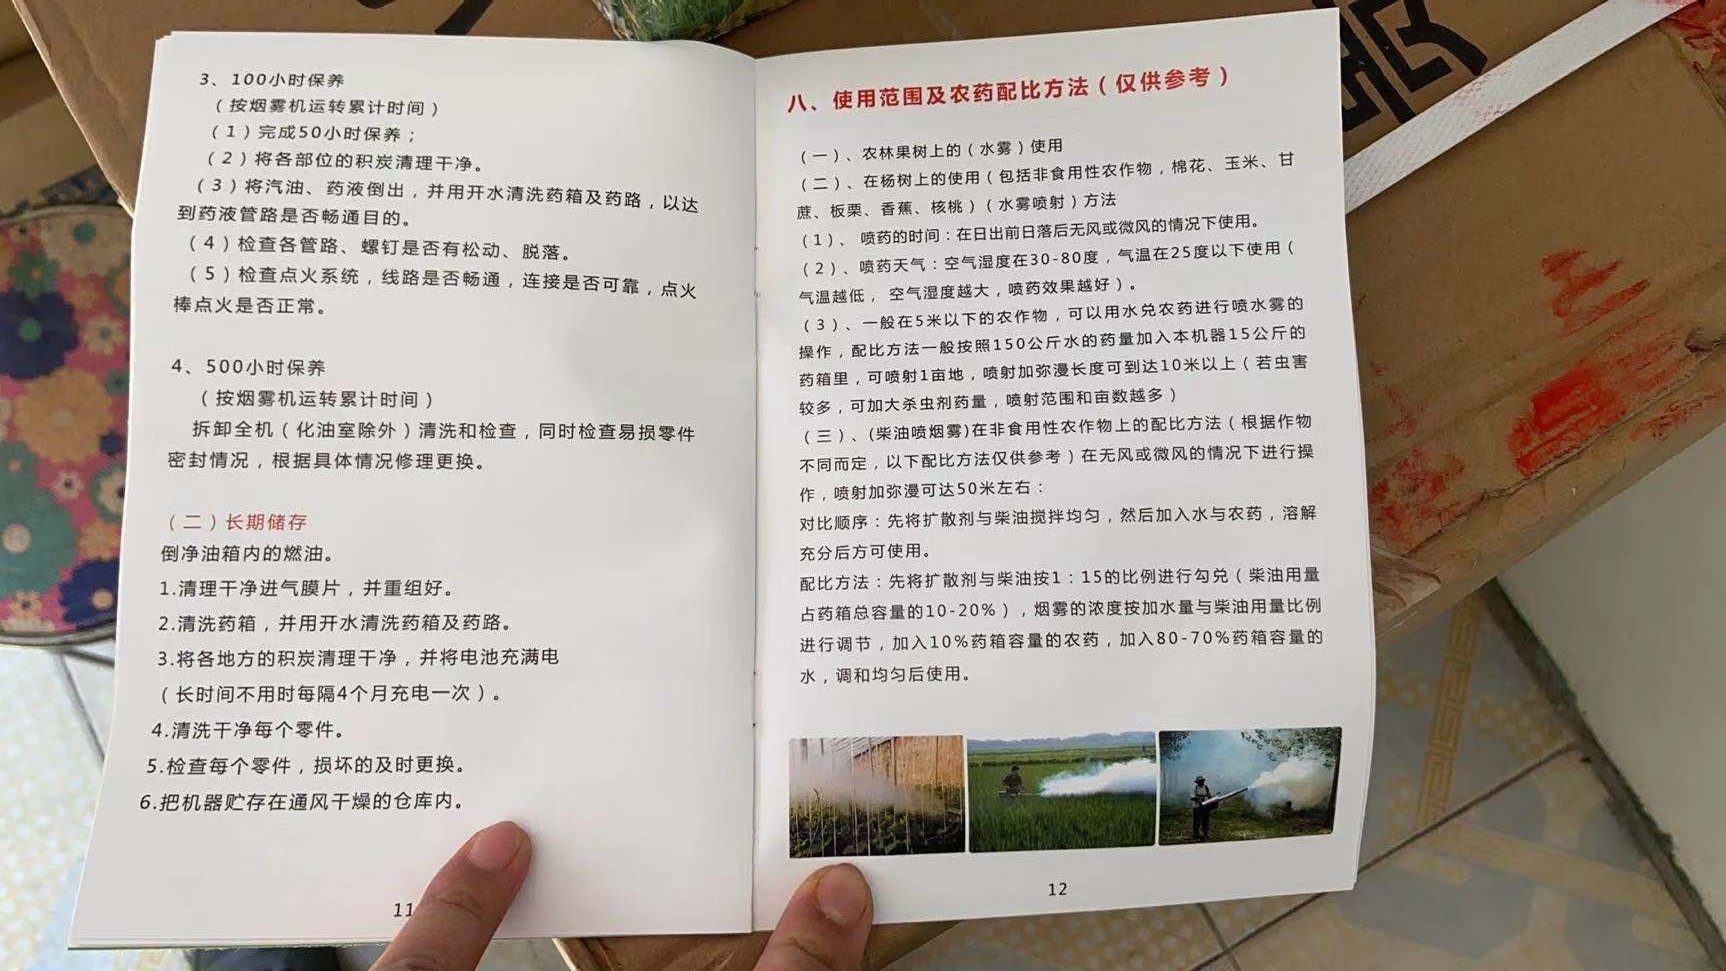 3、100小时保养
（按烟雾机运转累计时间）
（1）完成50小时保养；
（2）将各部位的积炭清理干净。
（3）将汽油、药液倒出，并用开水清洗药箱及药路，以达
到药液管路是否畅通目的。
（4）检查各管路、螺钉是否有松动、脱落。
（5）检查点火系统，线路是否畅通，连接是否可靠，点火
棒点火是否正常。
4、500小时保养
（按烟雾机运转累计时间）
拆卸全机（化油室除外）清洗和检查，同时检查易损零件
密封情况，根据具体情况修理更换。
（二）长期储存
倒净油箱内的燃油。
1.清理干净进气膜片，并重组好。
2.清洗药箱，并用开水清洗药箱及药路。
3.将各地方的积炭清理干净，并将电池充满电
（长时间不用时每隔4个月充电一次）。
4.清洗干净每个零件。
5.检查每个零件，损坏的及时更换。
6.把机器贮存在通风干燥的仓库内。
11
八、使用范围及农药配比方法（仅供参考）
（一）、农林果树上的（水雾）使用
（二）、在杨树上的使用（包括非食用性农作物，棉花、玉米、甘
蔗、板栗、香蕉、核桃）（水雾喷射）方法
（1）、喷药的时间：在日出前日落后无风或微风的情况下使用。
（2）、喷药天气：空气湿度在30-80度，气温在25度以下使用（
气温越低，空气湿度越大，喷药效果越好）。
（3）、一般在5米以下的农作物，可以用水兑农药进行喷水雾的
操作，配比方法一般按照150公斤水的药量加入本机器15公斤的
药箱里，可喷射1亩地，喷射加弥漫长度可到达10米以上（若虫害
较多，可加大杀虫剂药量，喷射范围和亩数越多）
（三）、(柴油喷烟雾)在非食用性农作物上的配比方法（根据作物
不同而定，以下配比方法仅供参考）在无风或微风的情况下进行操
作，喷射加弥漫可达50米左右：
对比顺序：先将扩散剂与柴油搅拌均匀，然后加入水与农药，溶解
充分后方可使用。
配比方法：先将扩散剂与柴油按1：15的比例进行勾兑（柴油用量
占药箱总容量的10-20%），烟雾的浓度按加水量与柴油用量比例
进行调节，加入10%药箱容量的农药，加入80-70%药箱容量的
水，调和均匀后使用。
12